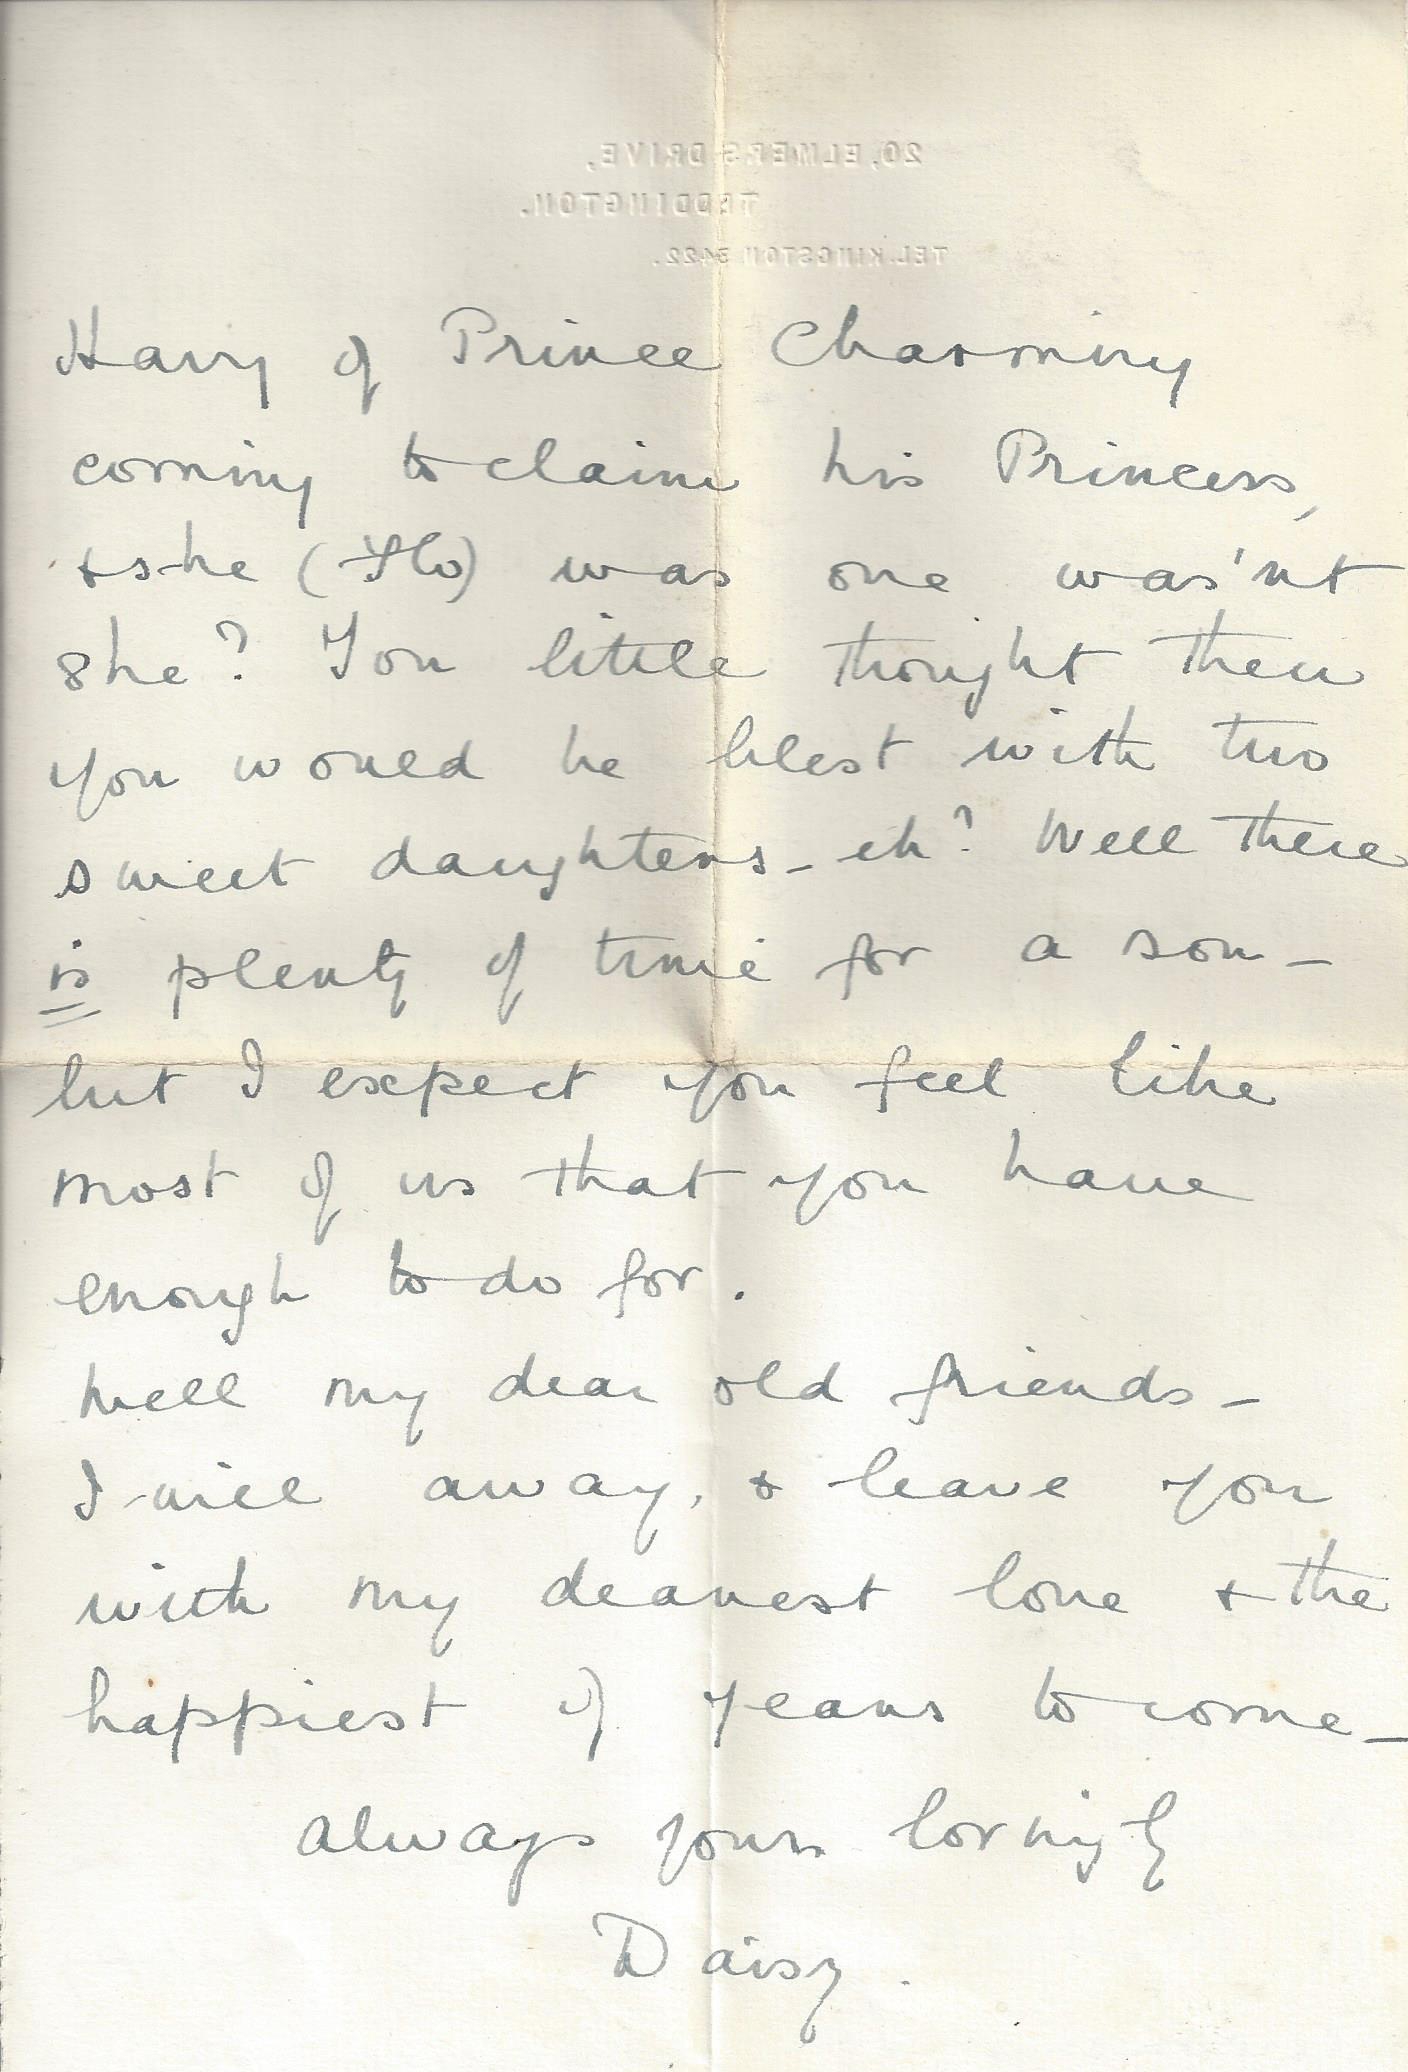 20, ELMERS DRIVE,
TEDDINGTON.
TEL. KINGSTON 3422.
Harry of Prince Charming
coming to claim his Princess,
& she (Flo) was one was'nt
she? You little thought then
you would be blest with two
sweet daughters - eh? Well there
is plenty of time for a son -
but I expect you feel like
most of us that you have
enough to do for.
Well my dear old friends -
I will away, & leave you
with my dearest love & the
happiest of years to come -
always yours lovingly
Daisy.